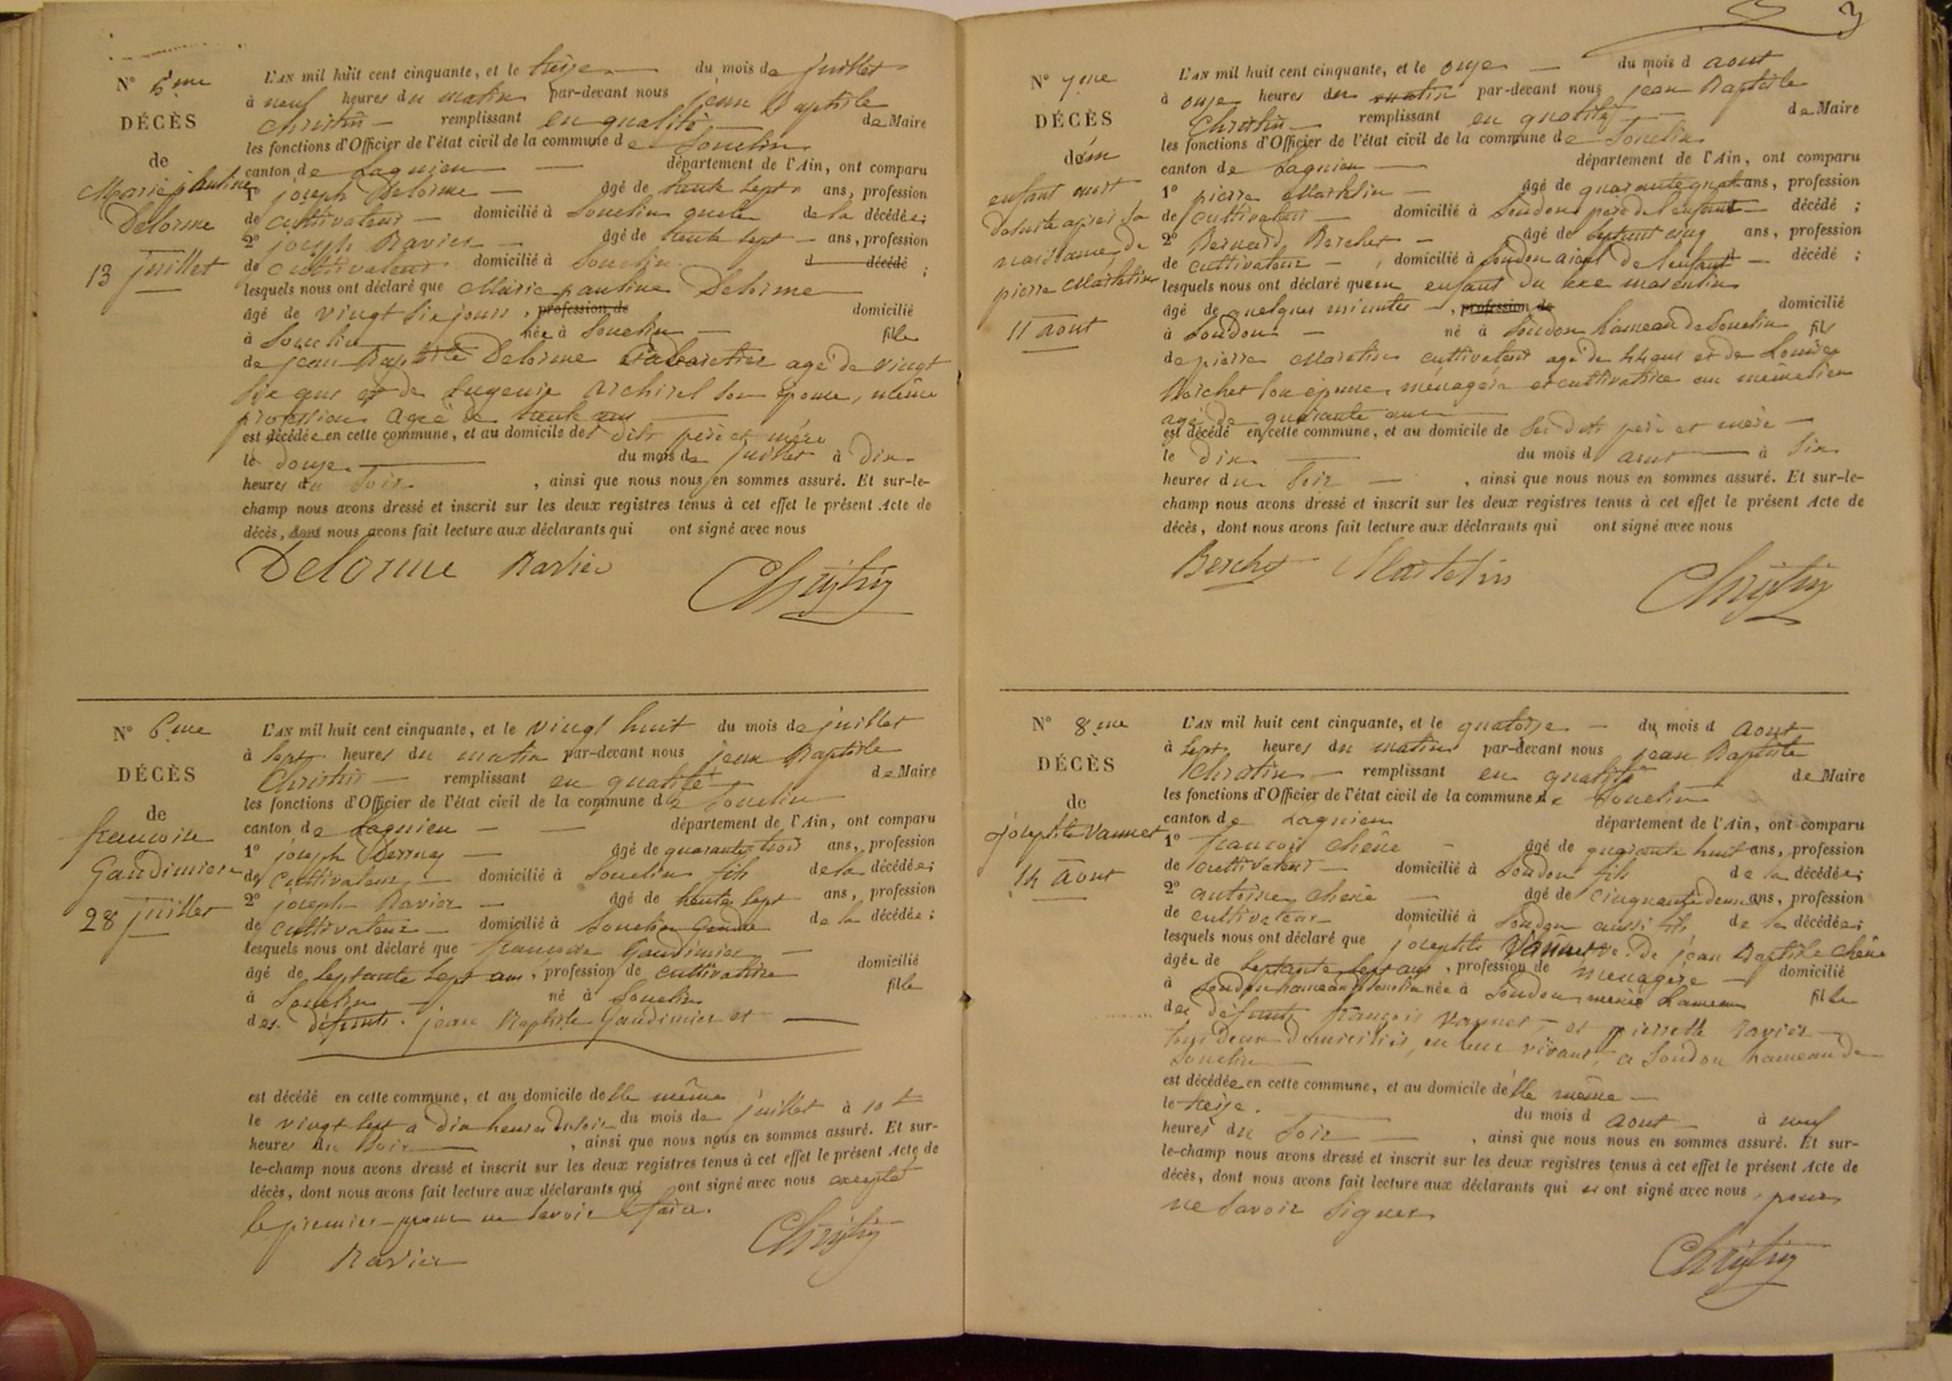 N° 5me
DÉCÈS
de
Marie pauline
Delorme
13 juillet
L'AN mil huit cent cinquante, et le treize du mois de juillet
à neuf heures du matin par-devant nous jean Baptiste
Christin remplissant en qualité de Maire
les fonctions d'Officier de l'état civil de la commune de Souclin
canton de Lagnieu département de l'Ain, ont comparu
1° joseph Delorme âgé de trente sept ans, profession
de cultivateur domicilié à Souclin de la décédée;
2° joseph Ravier âgé de trente sept ans, profession
de cultivateur domicilié à Souclin d décédé ;
lesquels nous ont déclaré que Marie pauline Delorme
âgé de vingt six jours, profession de domicilié
à Souclin née à Souclin fille
de jean Baptiste Delorme Cabaretier agé de vingt
six ans et de Eugenie Archirel son épouse, même
profession agée de trente ans
est décédée en cette commune, et au domicile des dits père et mère
le douze du mois de juillet à dix
heures du soir, ainsi que nous nous en sommes assuré. Et sur-le-
champ nous avons dressé et inscrit sur les deux registres tenus à cet effet le présent Acte de
décès, dont nous avons fait lecture aux déclarants qui ont signé avec nous
Delorme Ravier Christin
N° 6me
DÉCÈS
de
francoise
Gaudimier
28 juillet
L'AN mil huit cent cinquante, et le vingt huit du mois de juillet
à sept heures du matin par-devant nous jean Baptiste
Christin remplissant en qualité de Maire
les fonctions d'Officier de l'état civil de la commune de Souclin
canton de Lagnieu département de l'Ain, ont comparu
1° joseph âgé de quarante trois ans, profession
de cultivateur domicilié à Souclin fils de la décédée;
2° joseph Ravier âgé de trente sept ans, profession
de cultivateur domicilié à Souclin Gendre de la décédée;
lesquels nous ont déclaré que francoise Gaudimier
âgé de septante sept ans, profession de cultivatrice domicilié
à Souclin né à Souclin fille
des défunts jean Baptiste Gaudimier et
est décédé en cette commune, et au domicile delle même
le vingt sept a dix heures du soir du mois de juillet à 10 h
heures du soir, ainsi que nous nous en sommes assuré. Et sur-
le-champ nous avons dressé et inscrit sur les deux registres tenus à cet effet le présent Acte de
décès, dont nous avons fait lecture aux déclarants qui ont signé avec nous excepté
le premier pour ne savoir le faire.
Ravier Christin
3
N° 7me
DÉCÈS
d'un
enfant mort
de suite après sa
naissance de
pierre Martelin
11 aout
L'AN mil huit cent cinquante, et le onze du mois d aout
à onze heures du matin par-devant nous jean Baptiste
Christin remplissant en qualité de Maire
les fonctions d'Officier de l'état civil de la commune de Souclin
canton de Lagnieu département de l'Ain, ont comparu
1° pierre Martelin âgé de quarante quatre ans, profession
de cultivateur domicilié à Soudon père de l'enfant décédé ;
2° Bernard Berchet âgé de septante cinq ans, profession
de cultivateur domicilié à Soudon aieul de l'enfant décédé ;
lesquels nous ont déclaré qu'un enfant du sexe masculin
âgé de quelques minutes, profession de domicilié
à Soudon né à Soudon hameau de Souclin fils
de pierre Martelin cultivateur agé de 44 ans et de Louise
Berchet son épouse, ménagère et cultivatrice au même lieu
agé de quarante ans
est décédé en cette commune, et au domicile de ses dits père et mère
le dix du mois d aout à six
heures du soir, ainsi que nous nous en sommes assuré. Et sur-le-
champ nous avons dressé et inscrit sur les deux registres tenus à cet effet le présent Acte de
décès, dont nous avons fait lecture aux déclarants qui ont signé avec nous
Berchet Martelin Christin
N° 8me
DÉCÈS
de
josephte Vannet
14 aout
L'AN mil huit cent cinquante, et le quatorze du mois d aout
à sept heures du matin par-devant nous jean Baptiste
Christin remplissant en qualité de Maire
les fonctions d'Officier de l'état civil de la commune de Souclin
canton de Lagnieu département de l'Ain, ont comparu
1° francois Chêne âgé de quarante huit ans, profession
de cultivateur domicilié à Soudon fils de la décédée;
2° antoine chêne âgé de cinquante deux ans, profession
de cultivateur domicilié à Soudon aussi fils de la décédée;
lesquels nous ont déclaré que josephte Vannet Ve de jean Baptiste Chêne
âgée de septante sept ans, profession de ménagère domicilié
à Soudon hameau de Souclin née à Soudon même hameau fille
des défunts françois Vannet et pierrette Ravier
tous deux domiciliés, en leur vivant, a Soudon hameau de
Souclin
est décédée en cette commune, et au domicile d'elle même
le treize du mois d aout à neuf
heures du soir, ainsi que nous nous en sommes assuré. Et sur-
le-champ nous avons dressé et inscrit sur les deux registres tenus à cet effet le présent Acte de
décès, dont nous avons fait lecture aux déclarants qui n'ont signé avec nous, pour
ne savoir signer
Christin